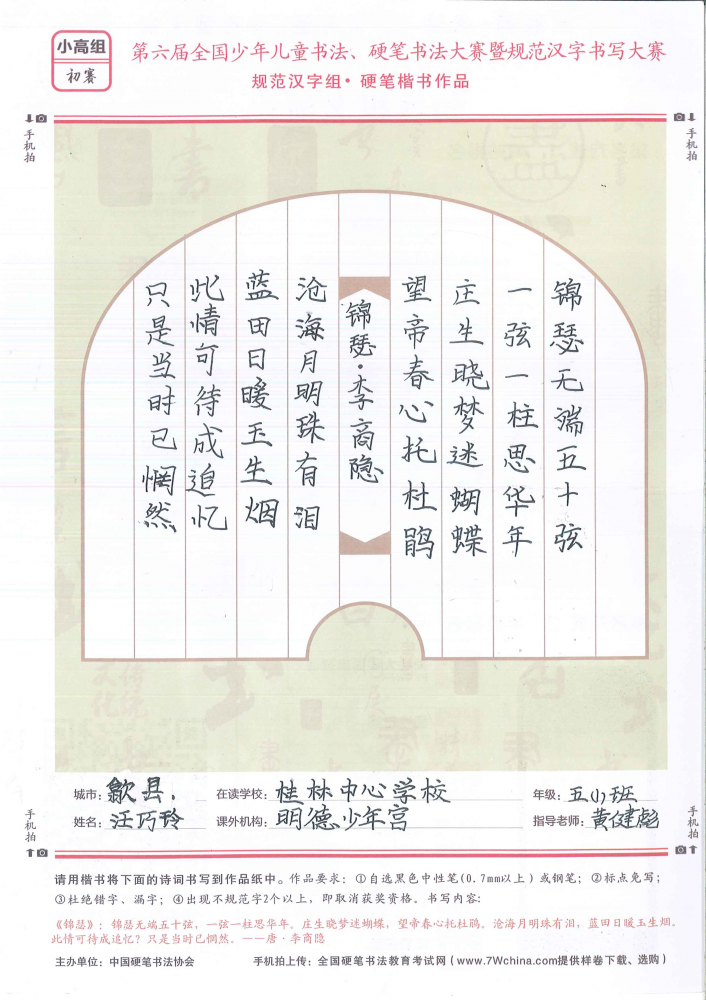 小高组
初赛
第六届全国少年儿童书法、硬笔书法大赛暨规范汉字书写大赛
规范汉字组·硬笔楷书作品
手机拍
手机拍
锦瑟无端五十弦
一弦一柱思华年
庄生晓梦迷蝴蝶
望帝春心托杜鹃
锦瑟·李商隐
沧海月明珠有泪
蓝田日暖玉生烟
此情可待成追忆
只是当时已惘然
城市：歙县. 在读学校：桂林中心学校 年级：五(1)班
姓名：汪巧玲 课外机构：明德少年宫 指导老师：黄健彪
手机拍
手机拍
请用楷书将下面的诗词书写到作品纸中。作品要求：①自选黑色中性笔(0.7mm以上）或钢笔；②标点免写；
③杜绝错字、漏字；④出现不规范字2个以上，即取消获奖资格。书写内容：
《锦瑟》：锦瑟无端五十弦，一弦一柱思华年。庄生晓梦迷蝴蝶，望帝春心托杜鹃。沧海月明珠有泪，蓝田日暖玉生烟。
此情可待成追忆？只是当时已惘然。——唐·李商隐
主办单位：中国硬笔书法协会 手机拍上传：全国硬笔书法教育考试网（www.7Wchina.com提供样卷下载、选购）